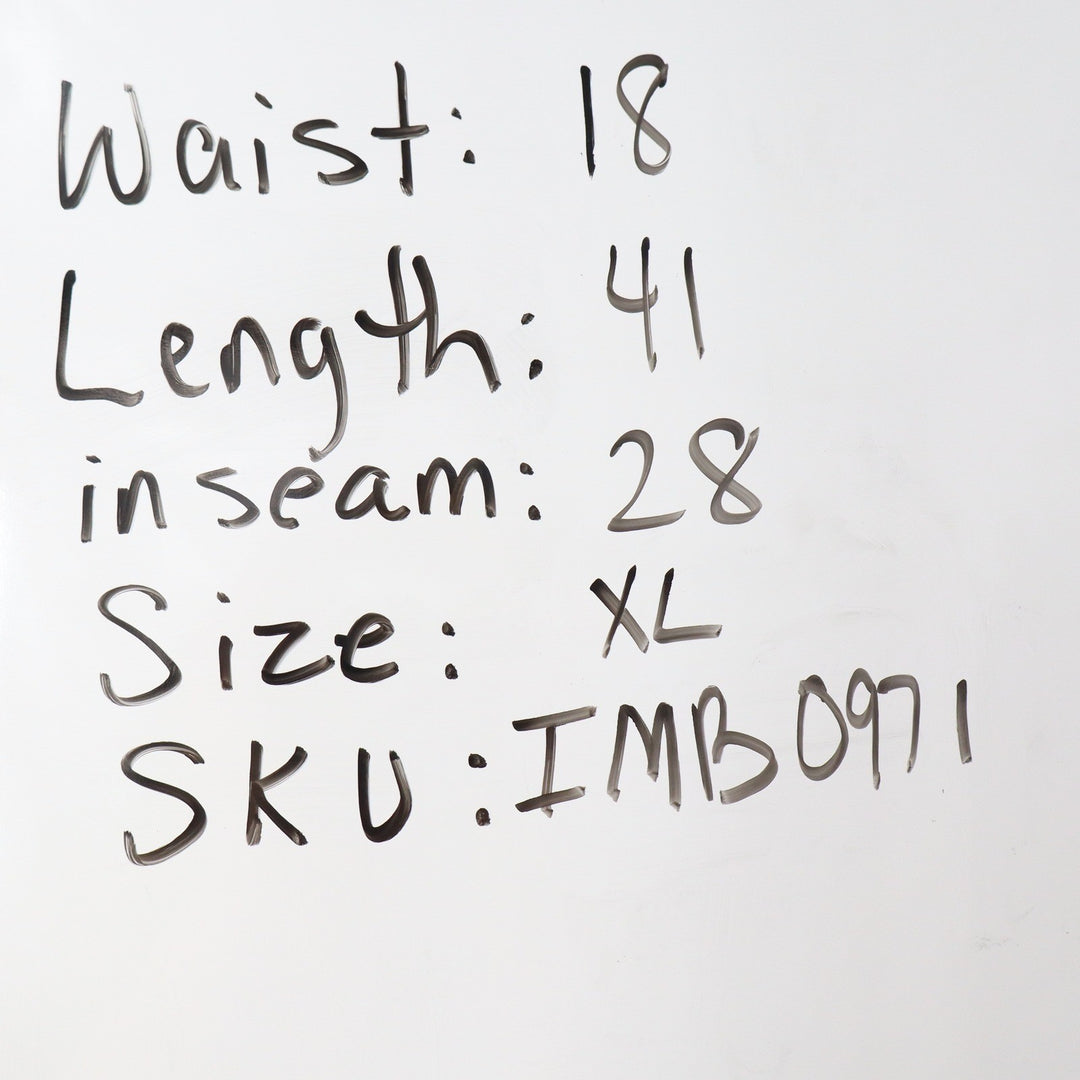 Waist: 18
Length: 41
inseam: 28
Size: XL
SKU: IMB0971